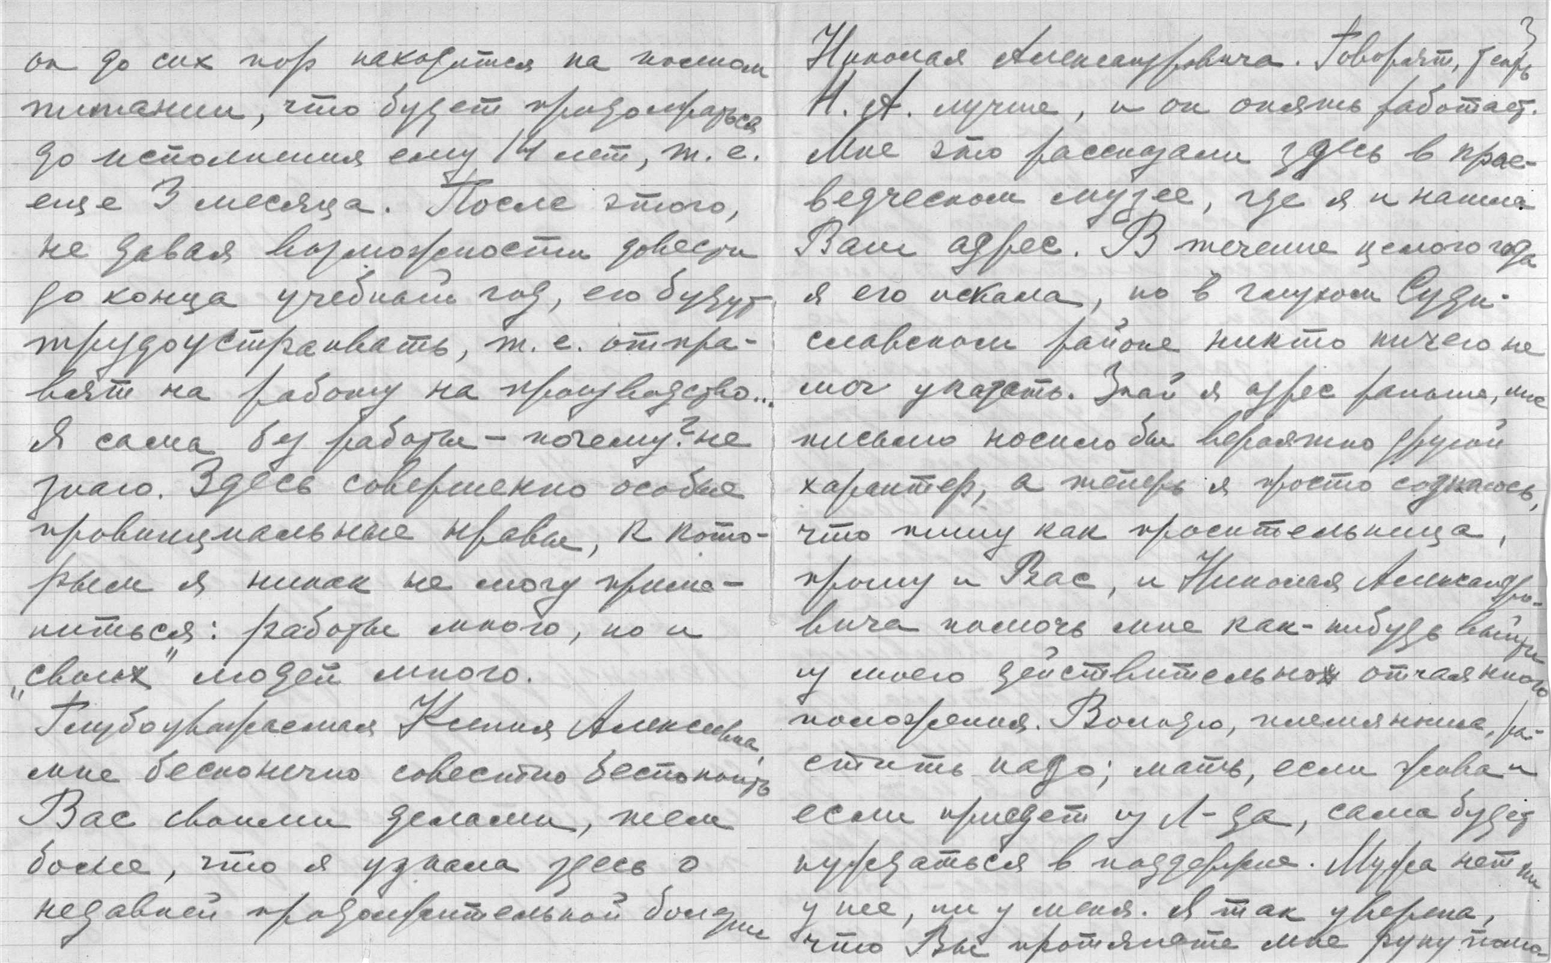 он до сих пор находится на полном
питании, что будет продолжаться
до исполнения ему 14 лет, т. е.
еще 3 месяца. После этого,
не давая возможности довести
до конца учебный год, его будут
трудоустраивать, т. е. отпра-
вят на работу на производство...
Я сама без работы – почему? не
знаю. Здесь совершенно особые
провинциальные нравы, к кото-
рым я никак не могу приме-
ниться: работы много, но и
„своих" людей много.
Глубокоуважаемая Ксения Алексеевна,
мне бесконечно совестно беспокоить
Вас своими делами, тем
более, что я узнала здесь о
недавней продолжительной болезни
3
Николая Александровича. Говорят, теперь
Н. А. лучше, и он опять работает.
Мне это рассказали здесь в крае-
ведческом музее, где я и нашла
Ваш адрес. В течение целого года
я его искала, но в глухом Суди-
славском районе никто ничего не
мог указать. Знай я адрес раньше, мое
письмо носило бы вероятно другой
характер, а теперь я просто сознаюсь,
что пишу как просительница,
прошу и Вас, и Николая Александро-
вича помочь мне как-нибудь выйти
из моего действительно отчаянного
положения. Володю, племянника, ра-
стить надо; мать, если жива и
если приедет из Л-да, сама будет
нуждаться в поддержке. Мужа нет ни
у нее, ни у меня. Я так уверена,
что Вы протянете мне руку помо-